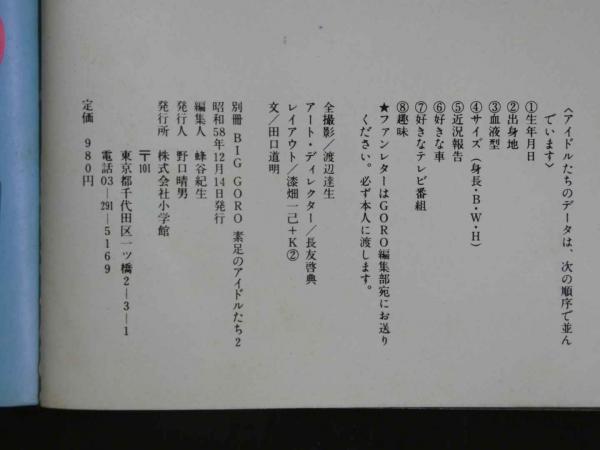 〈アイドルたちのデータは、次の順序で並ん
でいます〉
①生年月日
②出身地
③血液型
④サイズ（身長・B・W・H）
⑤近況報告
⑥好きな車
⑦好きなテレビ番組
⑧趣味
★ファンレターはGORO編集部宛にお送り
ください。必ず本人に渡します。
全撮影／渡辺達生
アート・ディレクター／長友啓典
レイアウト／漆畑一己＋K②
文／田口道明
別冊 BIG GORO 素足のアイドルたち2
昭和58年12月14日発行
編集人 蜂谷紀生
発行人 野口晴男
発行所 株式会社小学館
〒101
東京都千代田区一ツ橋2―3―1
電話03―291―5169
定価 980円